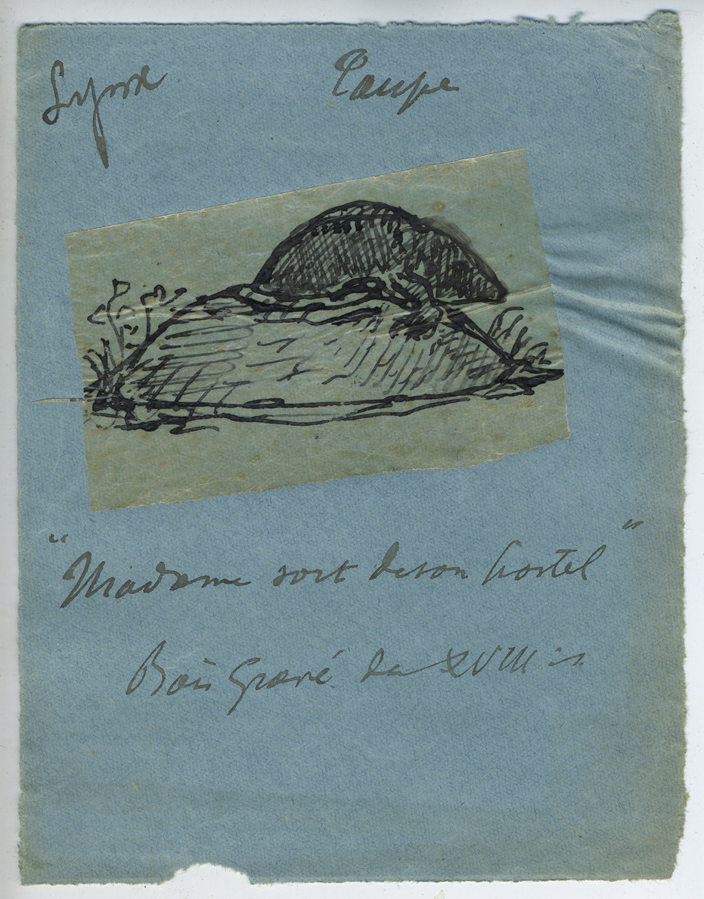 Lynx Taupe
"Madame sort de son hostel"
Bois gravé du XVIII s